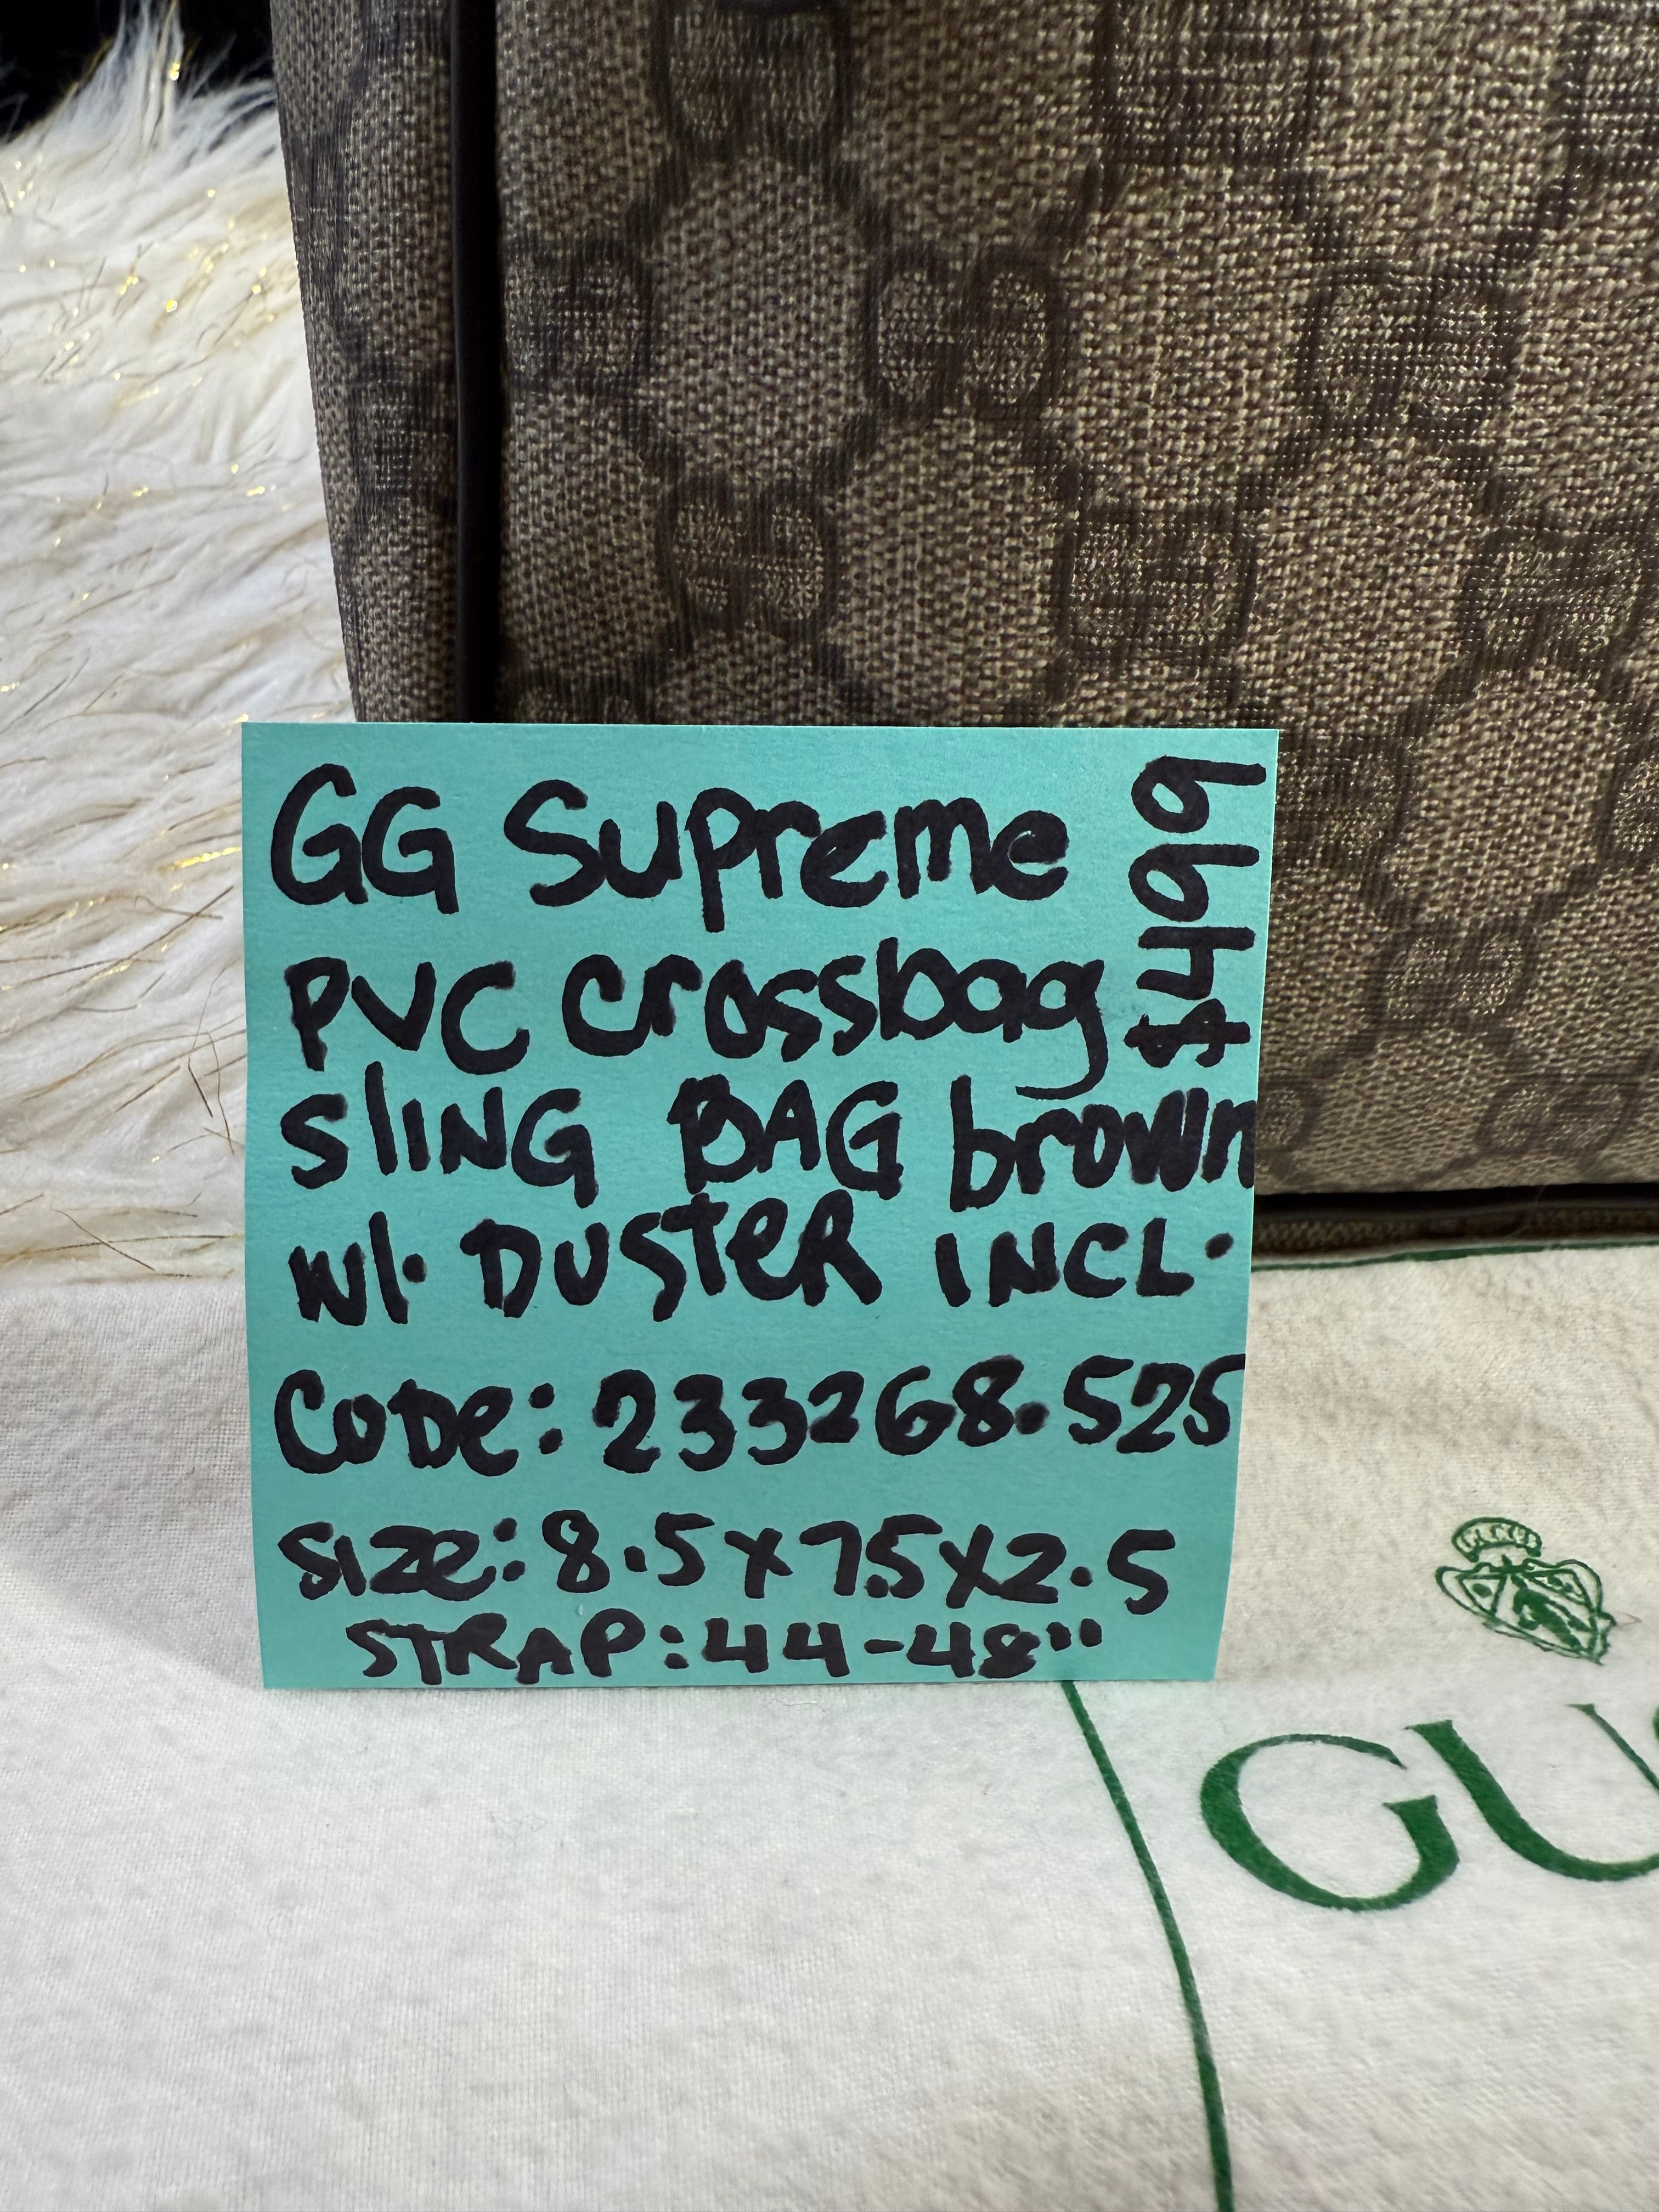 GG Supreme
PVC crossbag
SLING BAG brown
w/. DUSTER INCL.
CODe: 233268.525
SIZe: 8.5x7.5x2.5
STRAP: 44-48"
$499
GUCCI
GU